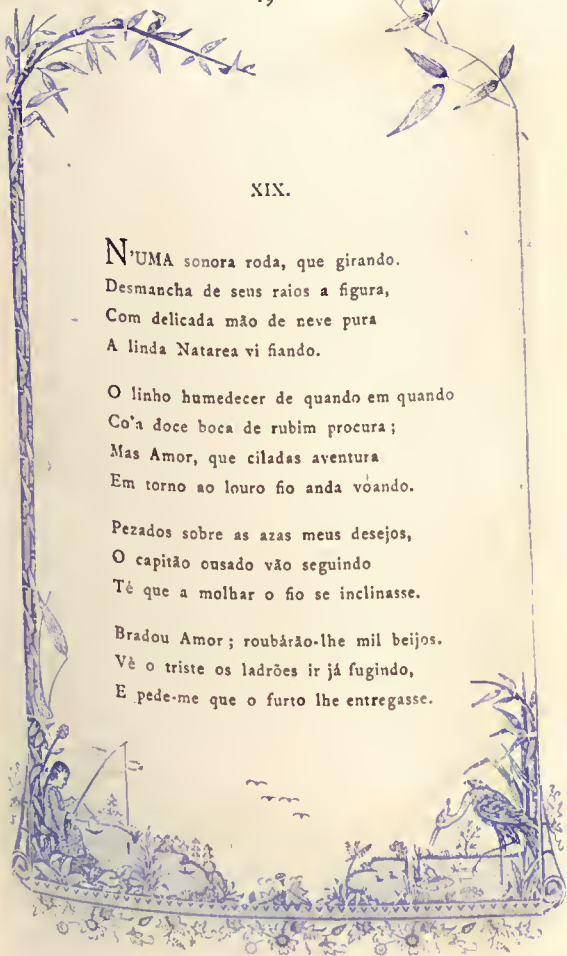 19
XIX.
N'UMA sonora roda, que girando.
Desmancha de seus raios a figura,
Com delicada mão de neve pura
A linda Natarea vi fiando.
O linho humedecer de quando em quando
Co'a doce boca de rubim procura;
Mas Amor, que ciladas aventura
Em torno ao louro fio anda voando.
Pezados sobre as azas meus desejos,
O capitão ousado vão seguindo
Té que a molhar o fio se inclinasse.
Bradou Amor; roubárão-lhe mil beijos.
Vê o triste os ladrões ir já fugindo,
E pede-me que o furto lhe entregasse.